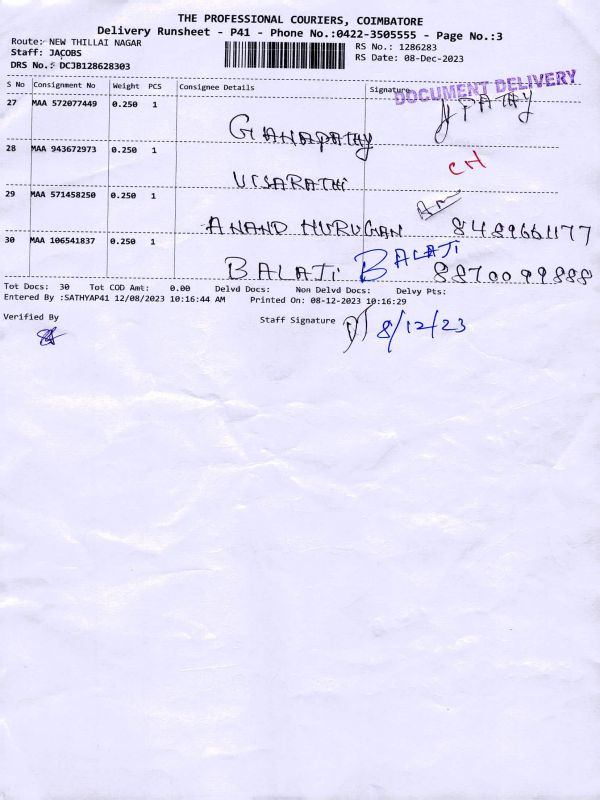 THE PROFESSIONAL COURIERS, COIMBATORE
Delivery Runsheet - P41 - Phone No.:0422-3505555 - Page No.:3
Route: NEW THILLAI NAGAR
Staff: JACOBS
DRS No.: DCJB128628303
RS No.: 1286283
RS Date: 08-Dec-2023
S No Consignment No Weight PCS Consignee Details Signature
DOCUMENT DELIVERY
27 MAA 572077449 0.250 1
GANAPATHY
28 MAA 943672973 0.250 1
CH
VISARATHI
29 MAA 571458250 0.250 1
ANAND MURUGAN 8489661177
30 MAA 106541837 0.250 1
BALAJI BALAJI 8870099888
Tot Docs: 30 Tot COD Amt: 0.00 Delvd Docs: Non Delvd Docs: Delvy Pts:
Entered By :SATHYAP41 12/08/2023 10:16:44 AM Printed On: 08-12-2023 10:16:29
Verified By
Staff Signature
8/12/23